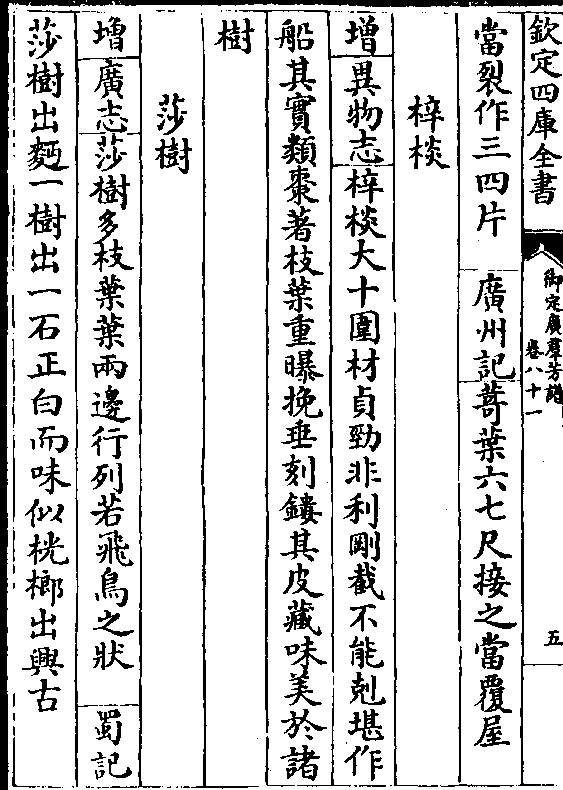 欽定四庫全書
御定廣羣芳譜
卷八十一
五
當裂作三四片　廣州記蒻葉六七尺接之當覆屋
梓棪
增異物志梓棪大十圍材貞勁非利剛截不能剋堪作
船其實類棗著枝葉重曝挽垂刻鏤其皮藏味美於諸
樹
莎樹
增廣志莎樹多枝葉葉兩邊行列若飛鳥之狀　蜀記
莎樹出麪一樹出一石正白而味似桄榔出興古